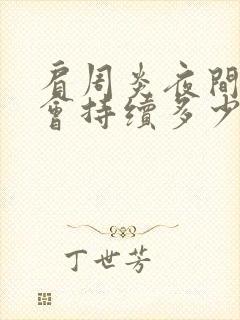 肩周炎夜間
會持续多少
丁世芳